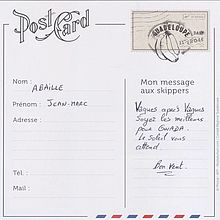 Post Card
GUADELOUPE
Nom :
ABAILLE
Prénom : JEAN-MARC
Adresse :
Tél. :
Mail :
Mon message
aux skippers
Vagues après Vagues
Soyez les meilleurs
pour GWADA.
Le soleil vous
attend.
Bon Vent.